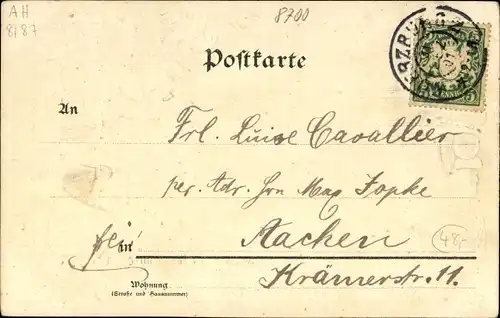 AH
8787
8700
Postkarte
An
Frl. Luise Cavallier
per. Adr. Hrn Max Jopke
frei
in
Aachen
48,-
Krämerstr. 11.
Wohnung
(Straße und Hausnummer)